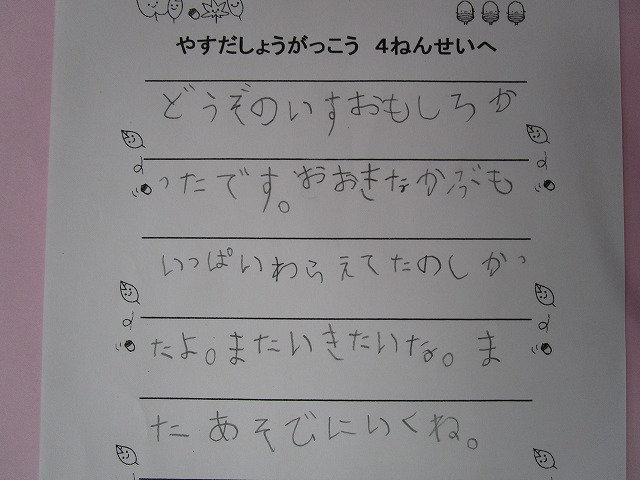 やすだしょうがっこう 4ねんせいへ
どうぞのいすおもしろか
ったです。おおきなかぶも
いっぱいわらえてたのしかっ
たよ。またいきたいな。ま
たあそびにいくね。